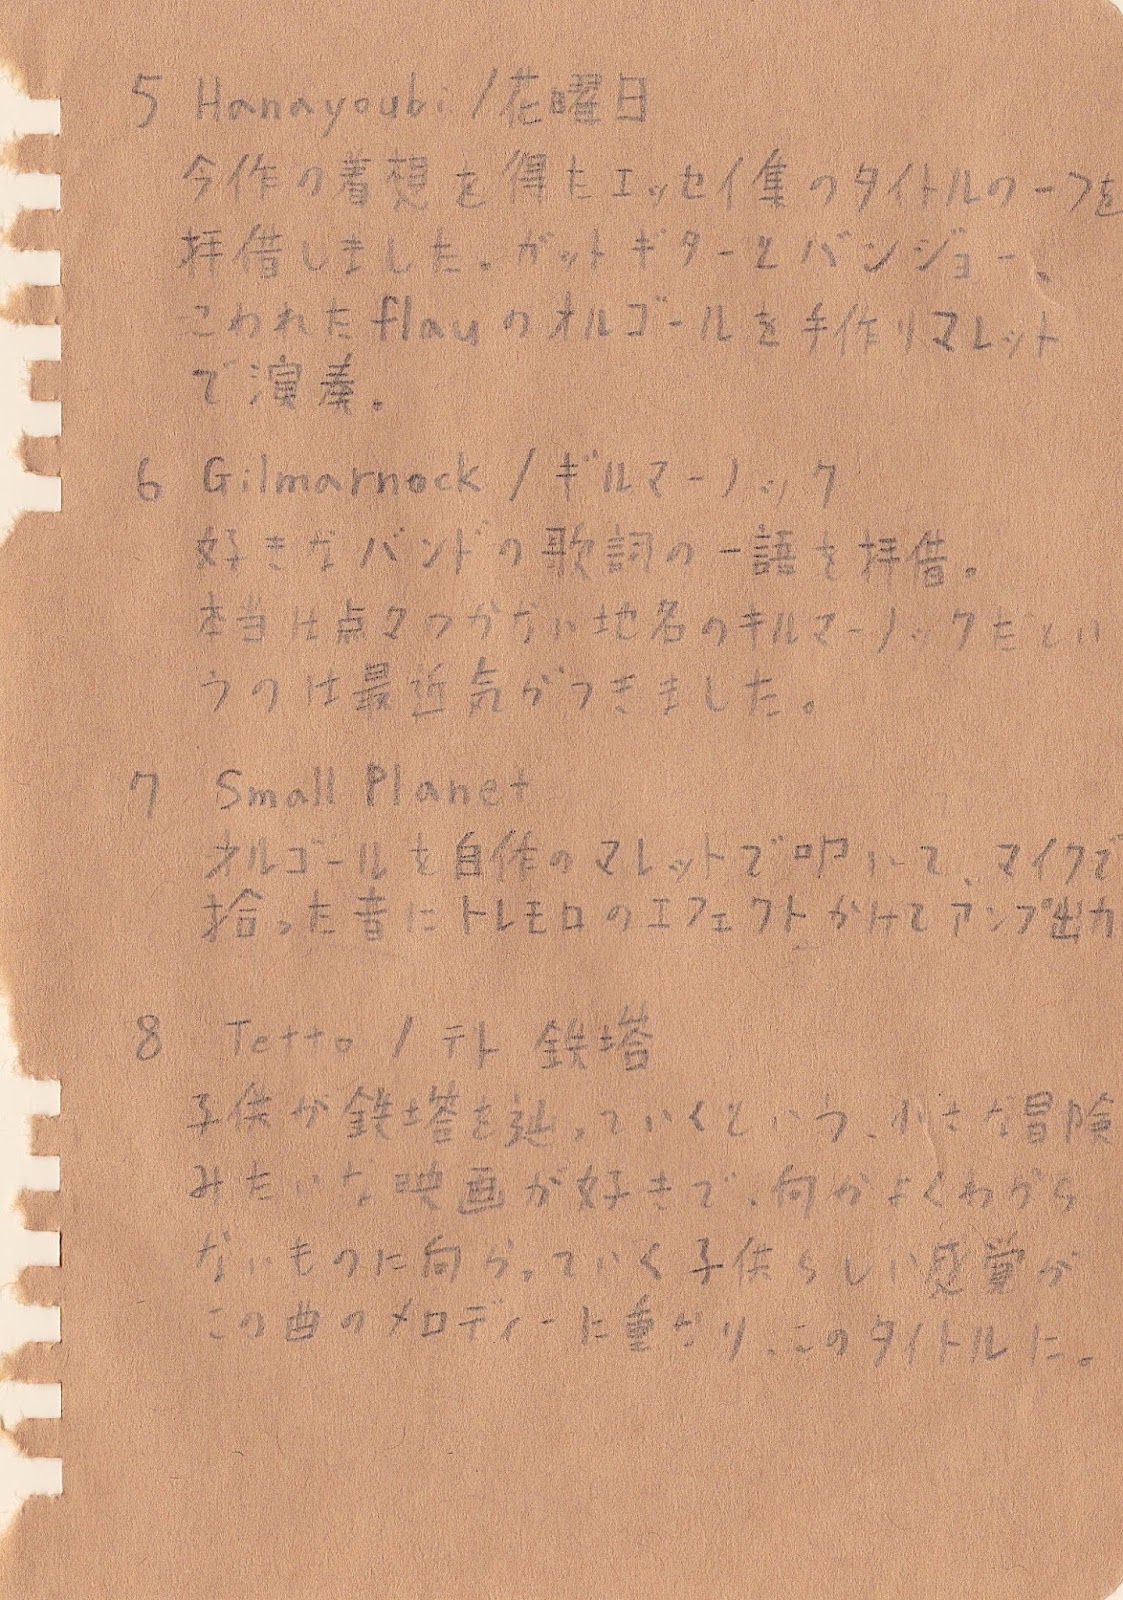 5 Hanayoubi / 花曜日
今作の着想を得たエッセイ集のタイトルの一つを
拝借しました。ガットギターとバンジョー、
こわれたflauのオルゴールを手作りマレット
で演奏。
6 Gilmarnock / ギルマーノック
好きなバンドの歌詞の一語を拝借。
本当は点々つかない地名のキルマーノックだとい
うのは最近気がつきました。
7 Small Planet
オルゴールを自作のマレットで叩いて、マイクで
拾った音にトレモロのエフェクトかけてアンプ出力
8 Tetto / テト 鉄塔
子供が鉄塔を辿っていくという、小さな冒険
みたいな映画が好きで、何かよくわから
ないものに向かっていく子供らしい感覚が
この曲のメロディーに重なり、このタイトルに。